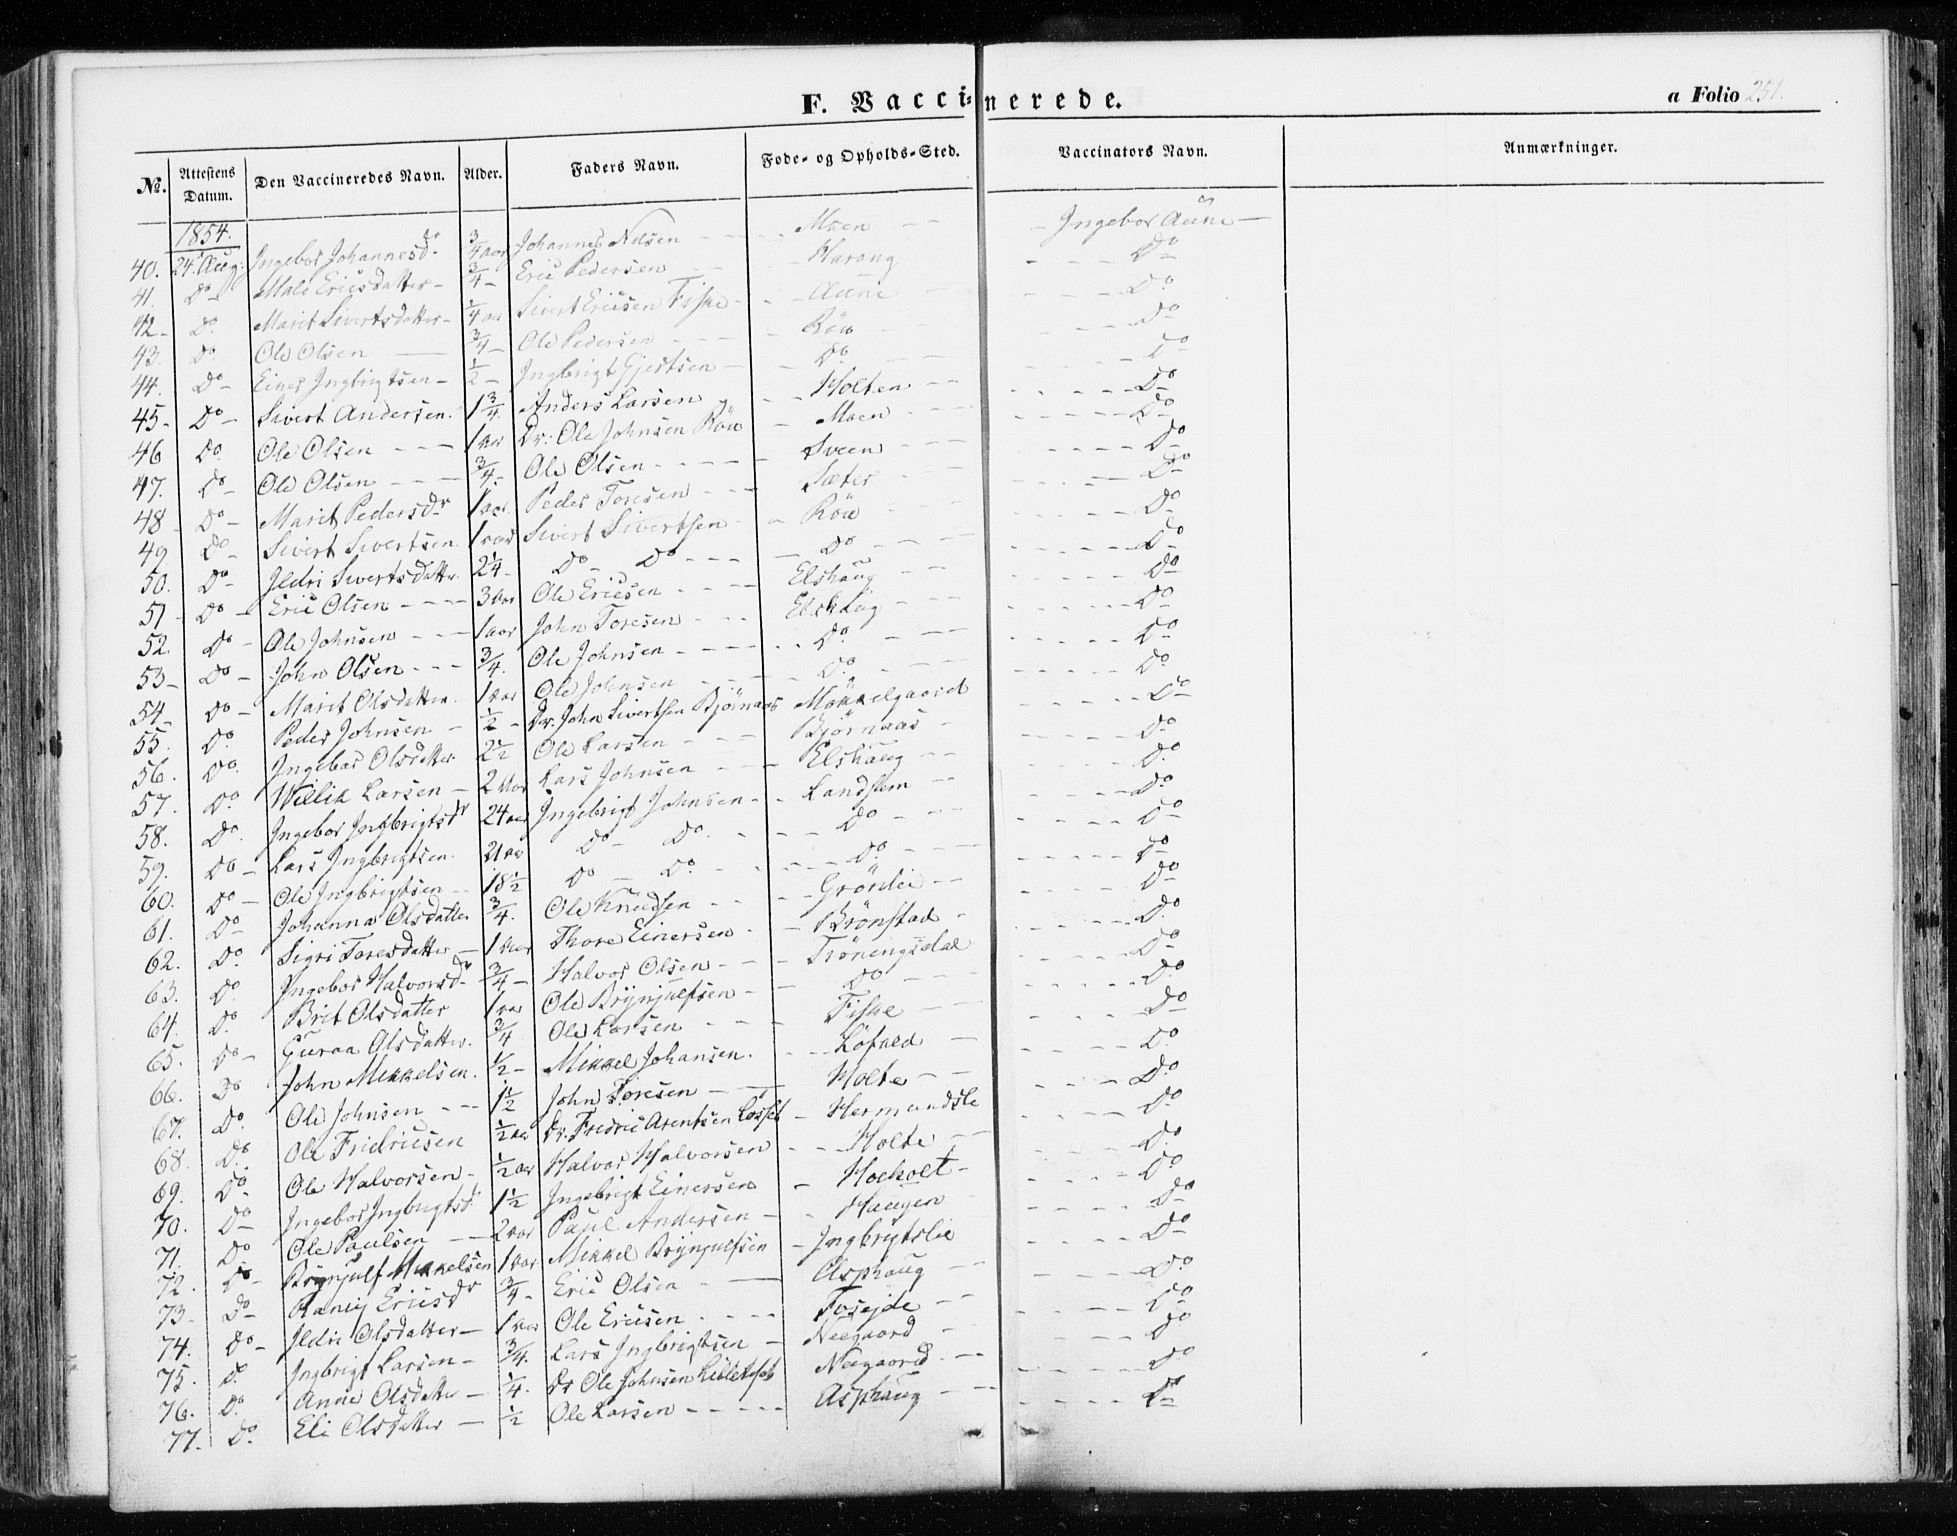 F. Vaccinerede.
a Folio 251.
No. Attestens Datum. Den Vaccineredes Navn. Alder. Faders Navn. Føde- og Opholds-Sted. Vaccinators Navn. Anmærkninger.
1854.
40. 24. Aug: Ingebor Johannesdr 3/4 aar Johannes Nilsen Moen Ingebor Aune
41. Do Mali Ericsdatter 3/4 Eric Pedersen Harang Do
42. Do Marit Sivertsdatter 1/4 aar Sivert Ericsen Fiske Aune Do
43. Do Ole Olsen 3/4 Ole Pedersen Röw Do
44. Do Einer Ingbrigtsen 1/2 Ingbrigt Gjertsen Do Do
45. Do Sivert Andersen 1 3/4 Anders Larsen Holten Do
46 Do Ole Olsen 1 aar Dr: Ole Johnsen Röw Moen Do
47. Do Ole Olsen 3/4 Ole Olsen Sveen Do
48 Do Marit Pedersdr 1 aar Peder Toresen Sæter Do
49 Do Sivert Sivertsen 1 aar Sivert Sivertsen Röw Do
50. Do Ildri Sivertsdatter 2 1/4 Do Do Do Do
51 Do Eric Olsen 3 aar Ole Ericsen Elshaug Do
52. Do Ole Johnsen 1 aar John Toresen Elshaug Do
53 Do John Olsen 3/4 Ole Johnsen Do Do
54 Do Marit Olsdatter 1 aar Ole Johnsen Do Do
55. Do Peder Johnsen 1/2 Dr. John Sivertsen Björnaas Mökkelgaard Do
56. Do Ingebor Olsdatter 2 1/2 Ole Larsen Björnaas Do
57. Do Willik Larsen 2 aar Lars Johnsen Elshaug Do
58. Do Ingebor Ingbrigtsdr 24 aar Ingebrigt Johnsen Landsem Do
59. Do Lars Ingbrigtsen 21 aar Do Do Do Do
60. Do Ole Ingbrigtsen 18 1/2 Do Do Do Do
61. Do Johanna Olsdatter 3/4 Ole Knudsen Grönlie Do
62. Do Sigri Toresdatter 1 aar Thore Einersen Brönstad Do
63. Do Ingebor Halvorsdr 3/4 Halvor Olsen Tröningsdal Do
64. Do Brit Olsdatter 1 aar Ole Brynjulfsen Do Do
65. Do Guroa Olsdatter 3/4 Ole Larsen Fiske Do
66. Do John Mikkelsen 1/2 Mikkel Johansen Löfald Do
67. Do Ole Johnsen 1 1/2 John Toresen Holte Do
68. Do Ole Fridricsen 1/2 aar Dr. Fredric Arentsen Losset Hermandsle Do
69. Do Ole Halvorsen 1/2 aar Halvor Halvorsen Holte Do
70. Do Ingebor Ingbrigtsdr 1 1/2 Ingebrigt Einersen Hocholt Do
71. Do Ole Paulsen 2 aar Paul Andersen Haugen Do
72. Do Brynjulf Mikkelsen 1 aar Mikkel Brynjulfsen Ingbrytslie Do
73 Do Raney Ericsdr 3/4 Eric Olsen Asphaug Do
74. Do Ildri Olsdatter 1 aar Ole Ericsen Fosejde Do
75. Do Ingbrigt Larsen 3/4 Lars Ingbrigtsen Neegaard Do
76. Do Anne Olsdatter 1/4 Dr Ole Johnsen Neegaard Do
77. Do Eli Olsdatter 1/2 Ole Larsen Asphaug Do